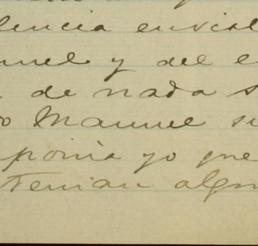 lencia envial
nuel y del e
de nada s
o Manuel su
ponia yo que
tenian algu